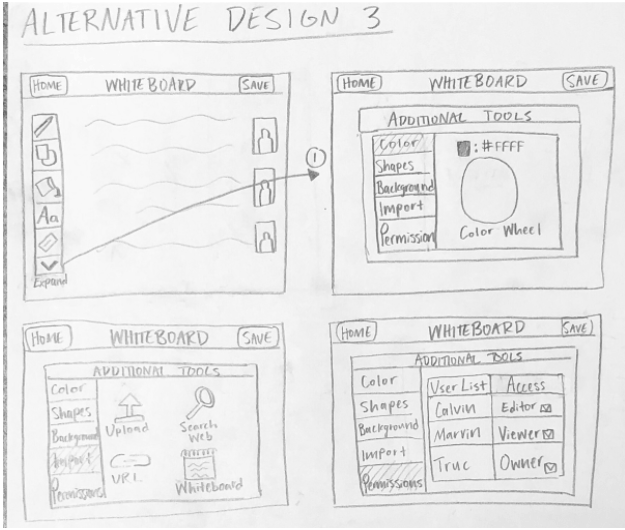 ALTERNATIVE DESIGN 3
HOME WHITEBOARD SAVE
Aa
Expand
1
HOME WHITEBOARD SAVE
ADDITIONAL TOOLS
Color
Shapes
Background
Import
Permission
: #FFFF
Color Wheel
HOME WHITEBOARD SAVE
ADDITIONAL TOOLS
Color
Shapes
Background
Import
Permissions
Upload
Search Web
URL
Whiteboard
HOME WHITEBOARD SAVE
ADDITIONAL TOOLS
Color
Shapes
Background
Import
Permissions
User List Access
Calvin Editor
Marvin Viewer
Truc Owner